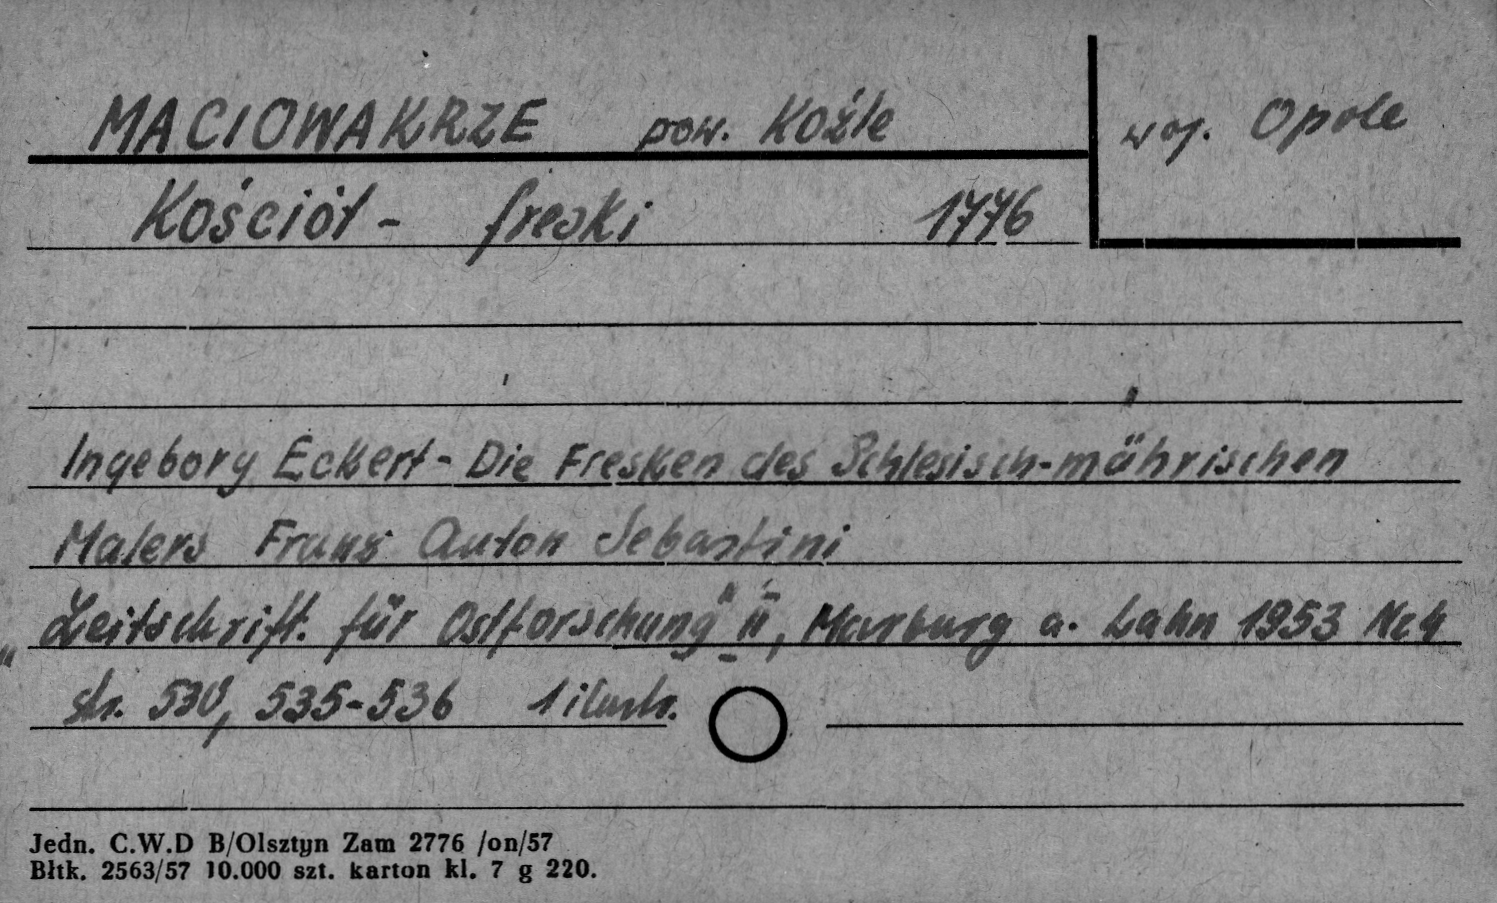 MACIOWAKRZE pow. Koźle
woj. Opole
Kościół - freski 1776
Ingeborg Eckert - Die Fresken des Schlesisch-mährischen
Malers Franz Anton Sebastini
"Zeitschrift für Ostforschung" II, Marburg a. Lahn 1953 H. 4
str. 530, 535-536 1 ilustr.
Jedn. C.W.D B/Olsztyn Zam 2776 /on/57
Błtk. 2563/57 10.000 szt. karton kl. 7 g 220.